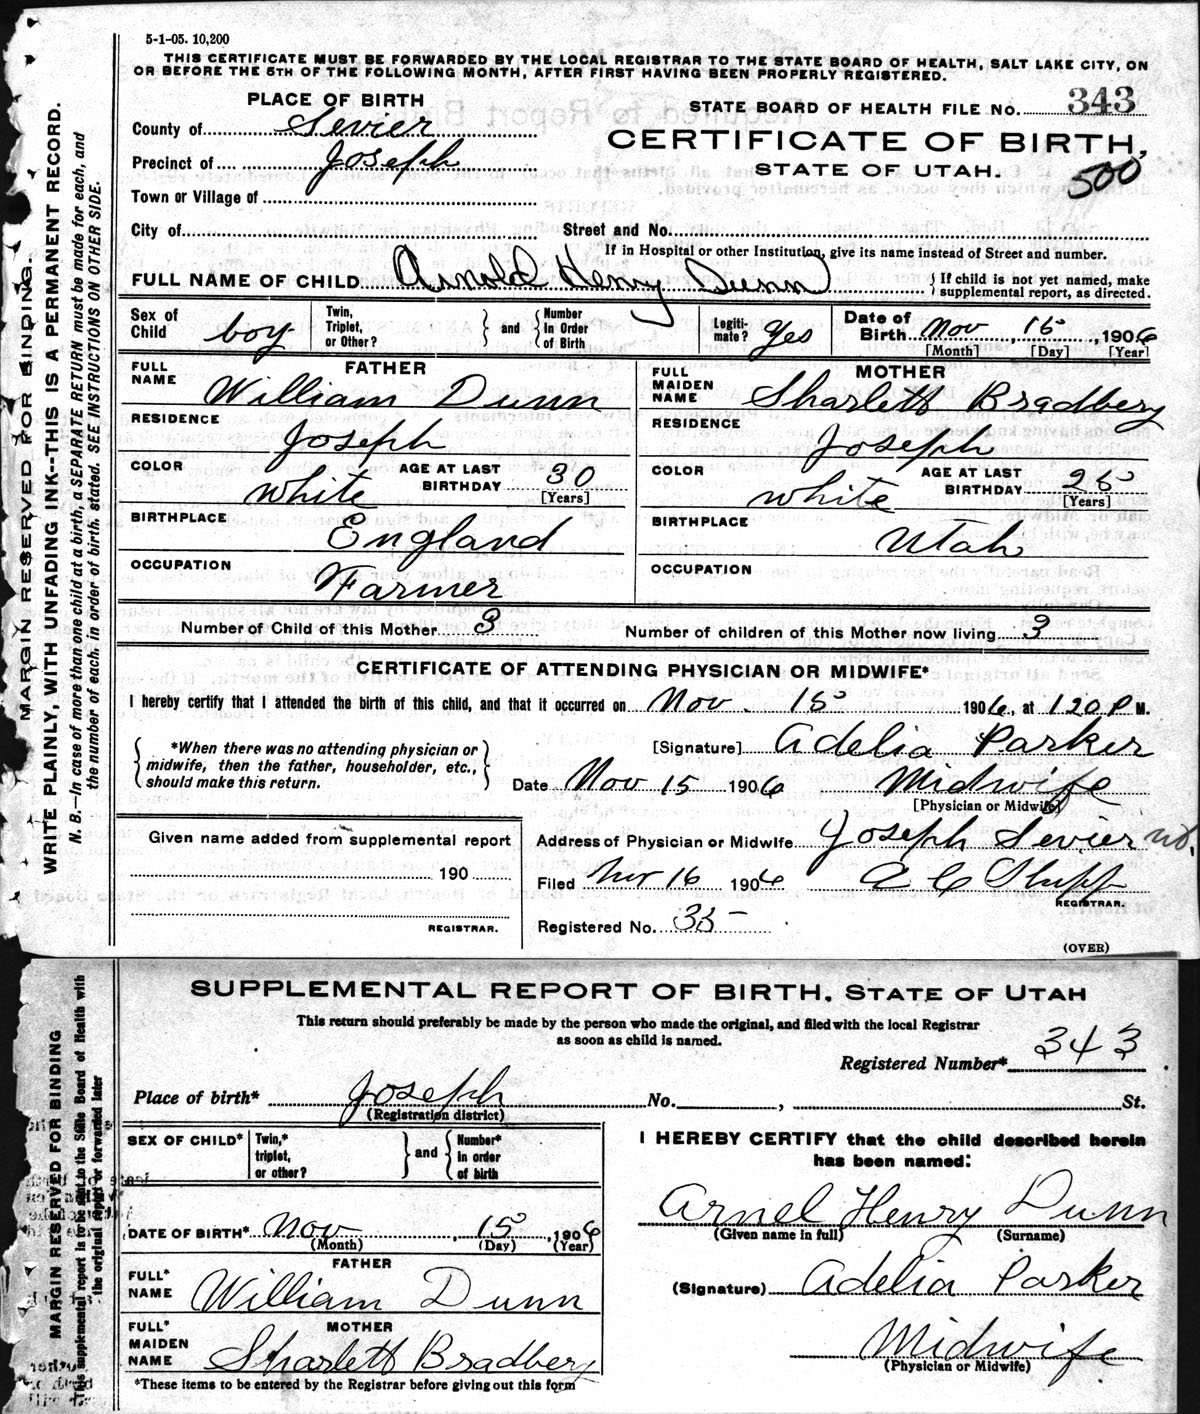 5-1-05. 10,200
THIS CERTIFICATE MUST BE FORWARDED BY THE LOCAL REGISTRAR TO THE STATE BOARD OF HEALTH, SALT LAKE CITY, ON
OR BEFORE THE 5TH OF THE FOLLOWING MONTH, AFTER FIRST HAVING BEEN PROPERLY REGISTERED.
MARGIN RESERVED FOR BINDING.
WRITE PLAINLY, WITH UNFADING INK--THIS IS A PERMANENT RECORD.
N. B.—In case of more than one child at a birth, a SEPARATE RETURN must be made for each, and
the number of each, in order of birth, stated. SEE INSTRUCTIONS ON OTHER SIDE.
PLACE OF BIRTH
STATE BOARD OF HEALTH FILE NO. 343
County of Sevier
CERTIFICATE OF BIRTH,
Precinct of Joseph
STATE OF UTAH.
500
Town or Village of
City of
Street and No.
If in Hospital or other Institution, give its name instead of Street and number.
FULL NAME OF CHILD Arnold Henry Dunn
If child is not yet named, make
supplemental report, as directed.
Sex of Child boy
Twin, Triplet, or Other?
and
Number In Order of Birth
Legiti-mate? Yes
Date of Birth Nov 15, 1906
[Month] [Day] [Year]
FATHER
FULL NAME William Dunn
RESIDENCE Joseph
COLOR white
AGE AT LAST BIRTHDAY 30
[Years]
BIRTHPLACE England
OCCUPATION Farmer
MOTHER
FULL MAIDEN NAME Sharlett Bradbery
RESIDENCE Joseph
COLOR white
AGE AT LAST BIRTHDAY 25
[Years]
BIRTHPLACE Utah
OCCUPATION
Number of Child of this Mother 3
Number of children of this Mother now living 3
CERTIFICATE OF ATTENDING PHYSICIAN OR MIDWIFE*
I hereby certify that I attended the birth of this child, and that it occurred on Nov. 15 1906, at 120 P M.
*When there was no attending physician or
midwife, then the father, householder, etc.,
should make this return.
[Signature] Adelia Parker
Date Nov 15 1906 Midwife
[Physician or Midwife]
Given name added from supplemental report
190
REGISTRAR.
Address of Physician or Midwife Joseph Sevier
Filed Nov 16 1906
REGISTRAR.
Registered No. 35
(OVER)
MARGIN RESERVED FOR BINDING
This supplemental report is to be sent to the State Board of Health with
the original report or forwarded later
SUPPLEMENTAL REPORT OF BIRTH, STATE OF UTAH
This return should preferably be made by the person who made the original, and filed with the local Registrar
as soon as child is named.
Registered Number* 343
Place of birth* Joseph No. , St.
(Registration district)
SEX OF CHILD*
Twin,* triplet, or other?
and
Number* In order of birth
DATE OF BIRTH* Nov, 15, 1906
(Month) (Day) (Year)
FATHER
FULL* NAME William Dunn
MOTHER
FULL* MAIDEN NAME Sharlett Bradbery
*These items to be entered by the Registrar before giving out this form
I HEREBY CERTIFY that the child described herein
has been named:
Arnel Henry Dunn
(Given name in full) (Surname)
(Signature) Adelia Parker
Midwife
(Physician or Midwife)